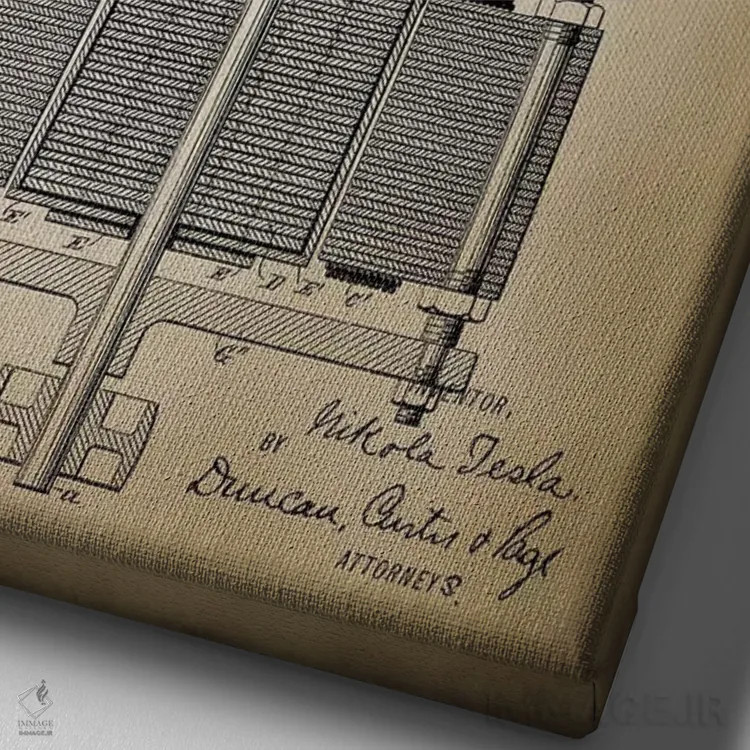 E'
E'
E'
D
E'
C'
G"
INVENTOR,
Nikola Tesla.
BY
Duncan, Curtis & Page
ATTORNEYS.
a
IMMAGE
IMMAGE.IR
IMMAGE.IR